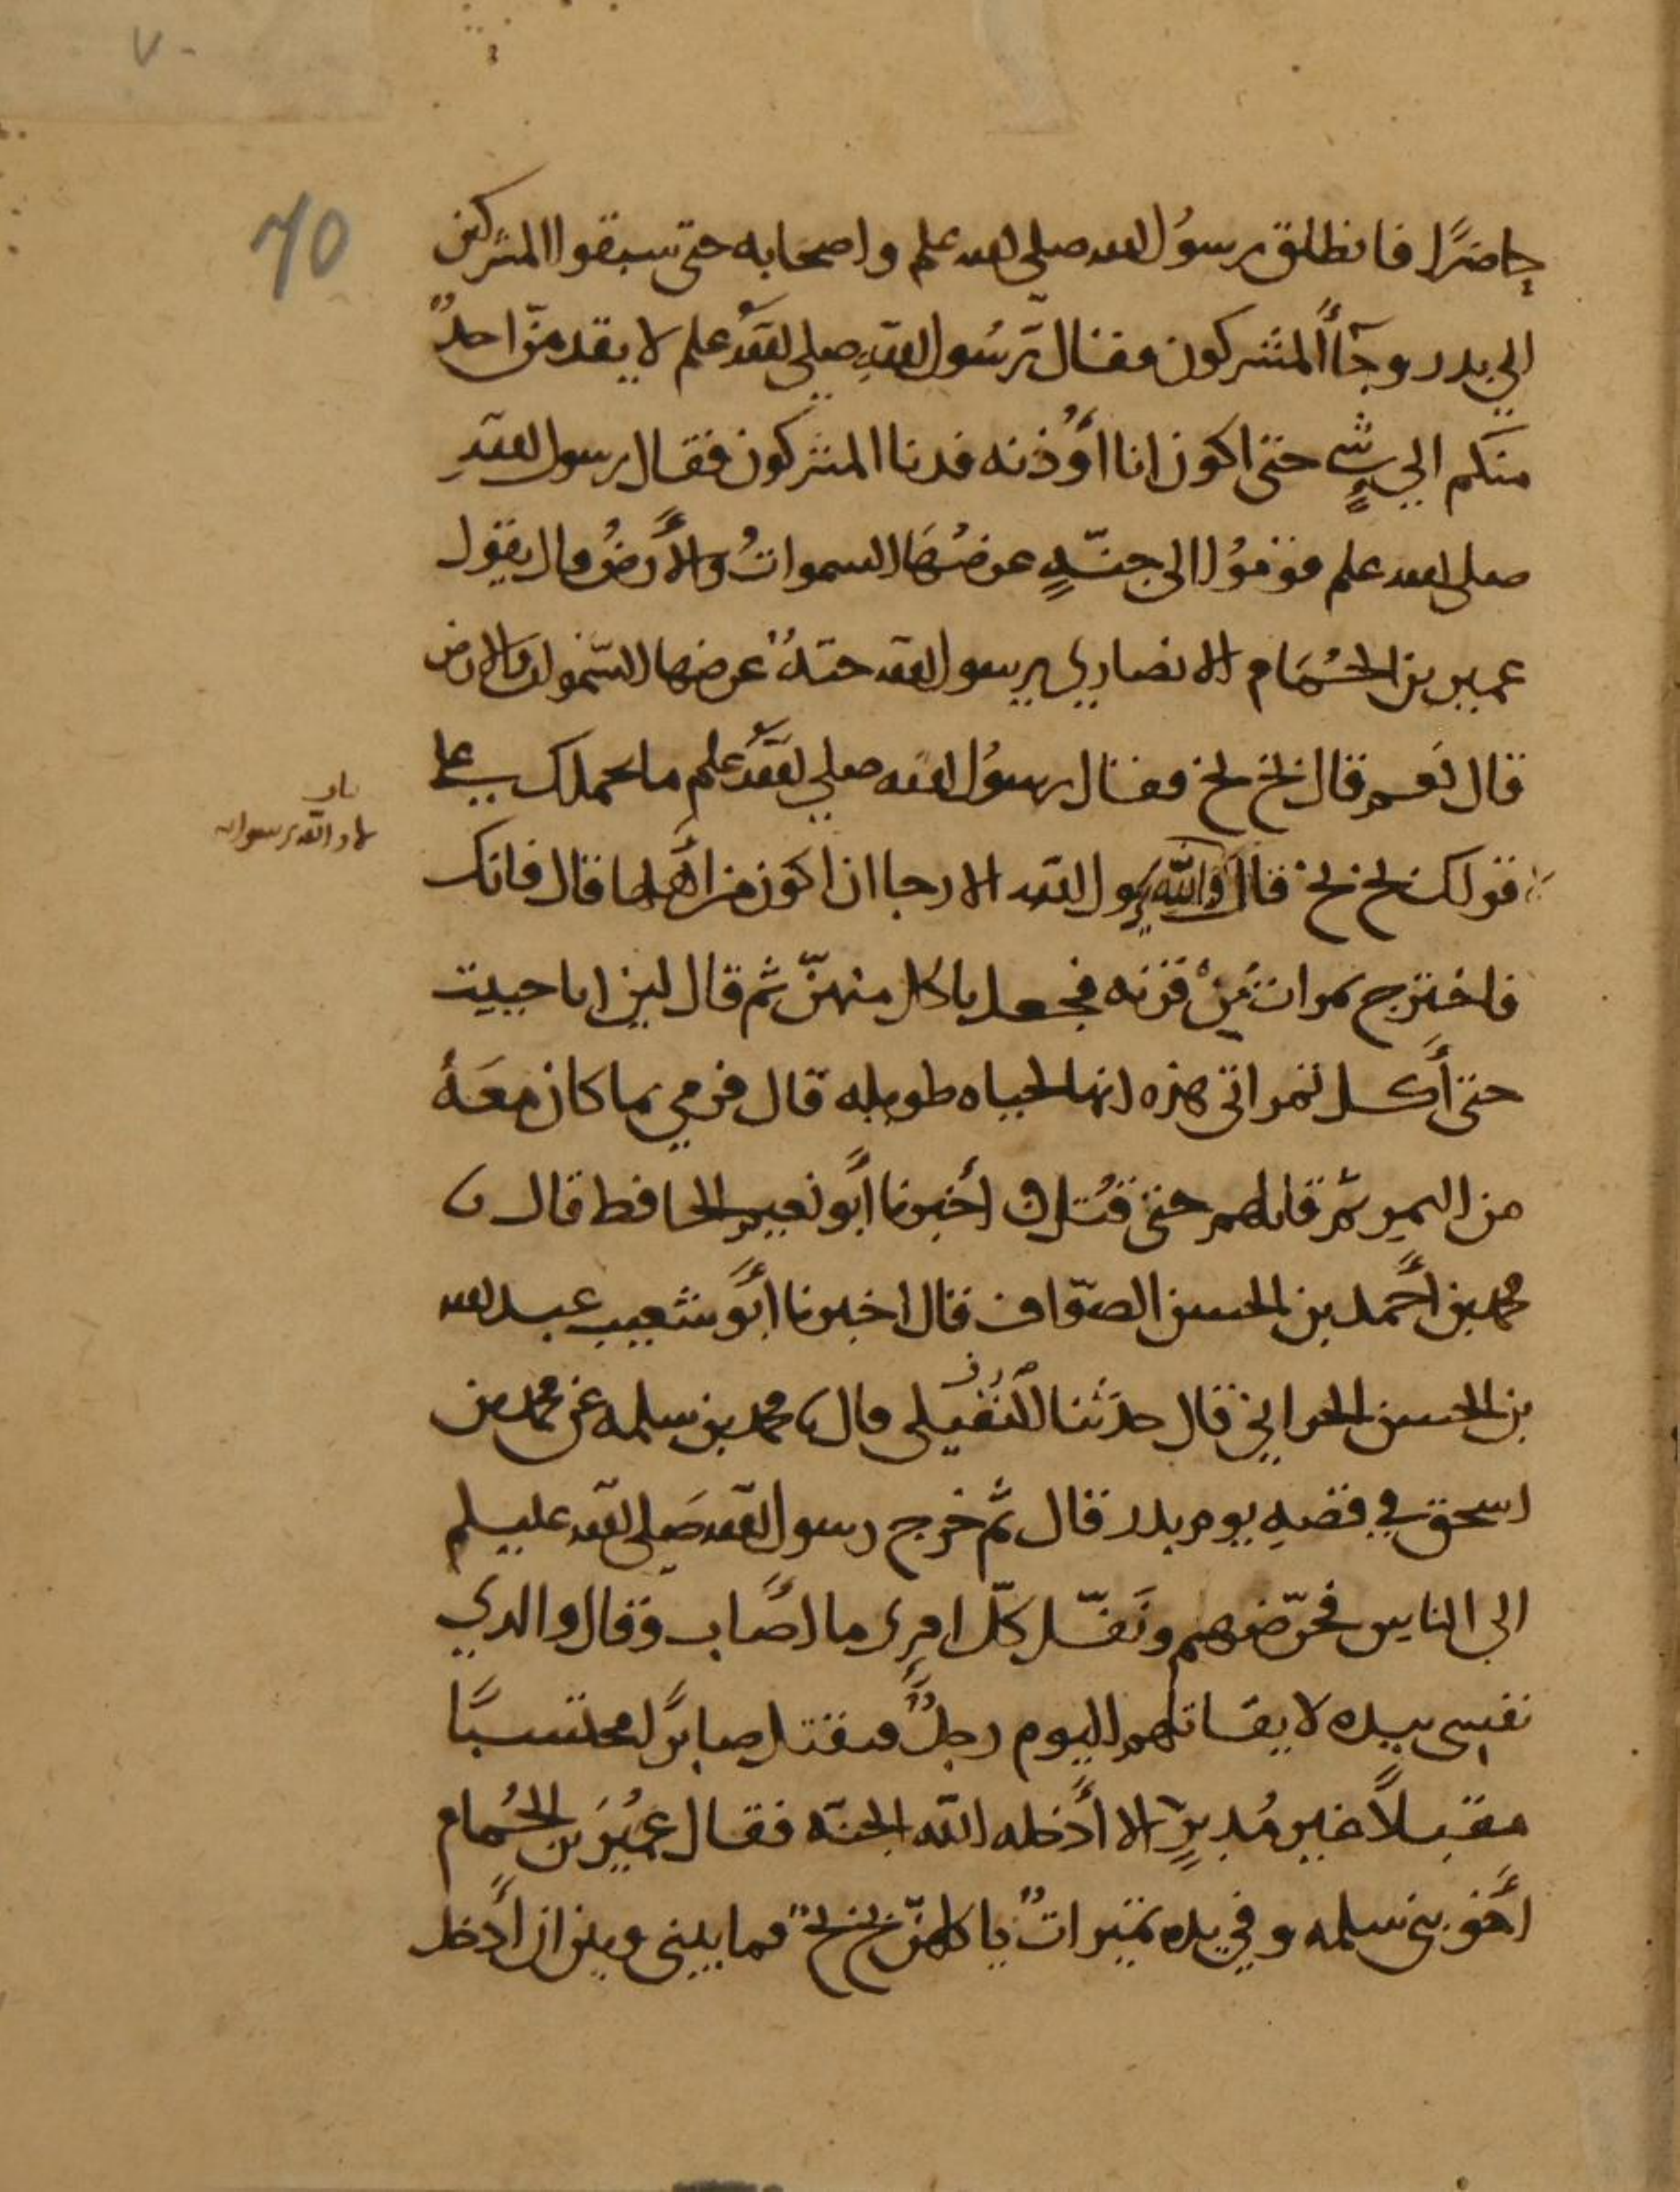 ٧٠
70
حاضرًا فانطلق رسوُل الله صلى الله علم واصحابه حتى سبقوا المشركين
الي بدر وجآأ المشركون فقال رّسُول الله صلي الله علم لا يقدمنّ احدٌ
منكم الي شيٍ حتى اكون انا أوُذنه فدنا المشركون فقال رسول الله
صلى الله علم قوموُا الى جنّهٍ عرضُهَا السمواتُ والأرضُ قال يقول
عمير بن الحُمَام الانصاري يرسول الله جنهٌ عرضها السّموات والارض
قال نعم قال بخ بخ فقال رسوُل الله صلي الله علم ما يحملك على
قولك بخ بخ قال لا والله يرسول الله الا رجا ان اكون من أهلها قال فانك
باب
لا والله يرسول الله
فاخترج تمرات مِنْ قرنه فجعل ياكل منهنّ ثم قال لين انا حييت
حتى أكل تمراتى هذه انها لحياه طويله قال فرمي بما كان معَهُ
من التمر ثمّ قاتلهم حتى قُتل أخبرنا أبو نعيم الحافظ قال
محمد بن أحمد بن الحسن الصوّاف قال اخبرنا أبو شعيب عبد الله
بن الحسن الحراني قال حدثنا النُفيلى قال محمد بن سلمه عن محمد بن
اسحق في قصهِ يوم بدر قال ثمّ خرج رسول الله صَلى الله عليسلم
الى الناس فحرّضهم ونَفّل كلّ امرِى ما اصَاب وقال والدي
نفسى بيده لا يقاتلهم اليوم رجلٌ فيقتل صابرًا محتسبًا
مقبلاً غير مُدبرٍ الا أدخله الله الجنه فقال عُمَيْرَ بن الحُمام
أخو بني سلمه وفي يده تميراتٌ ياكلهنّ بخ بخٌ فما بيني وبين ان أدخل